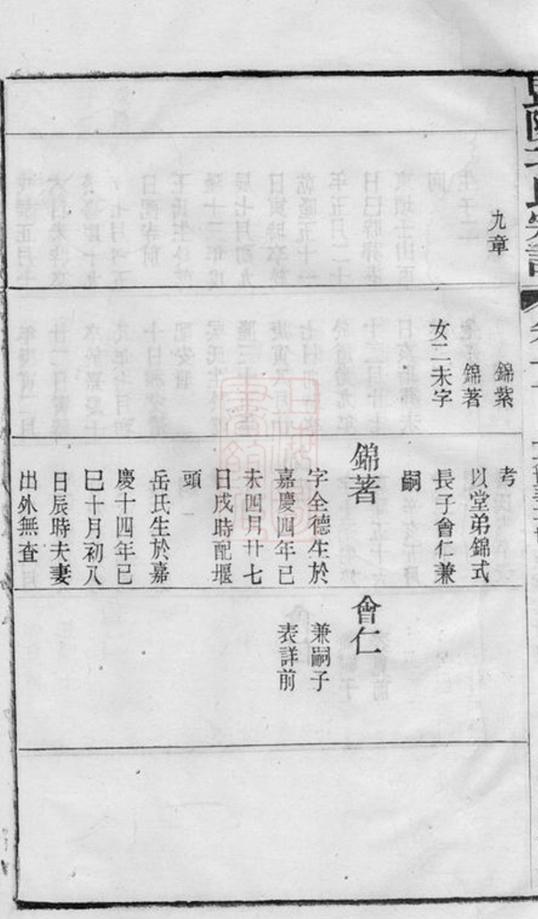 九章
錦紫
錦著
女二未字
考
以堂弟錦式
長子會仁兼
嗣
錦著
字全德生於
嘉慶四年己
未四月廿七
日戌時配堰
頭
岳氏生於嘉
慶十四年已
巳十月初八
日辰時夫妻
出外無查
會仁
兼嗣子
表詳前